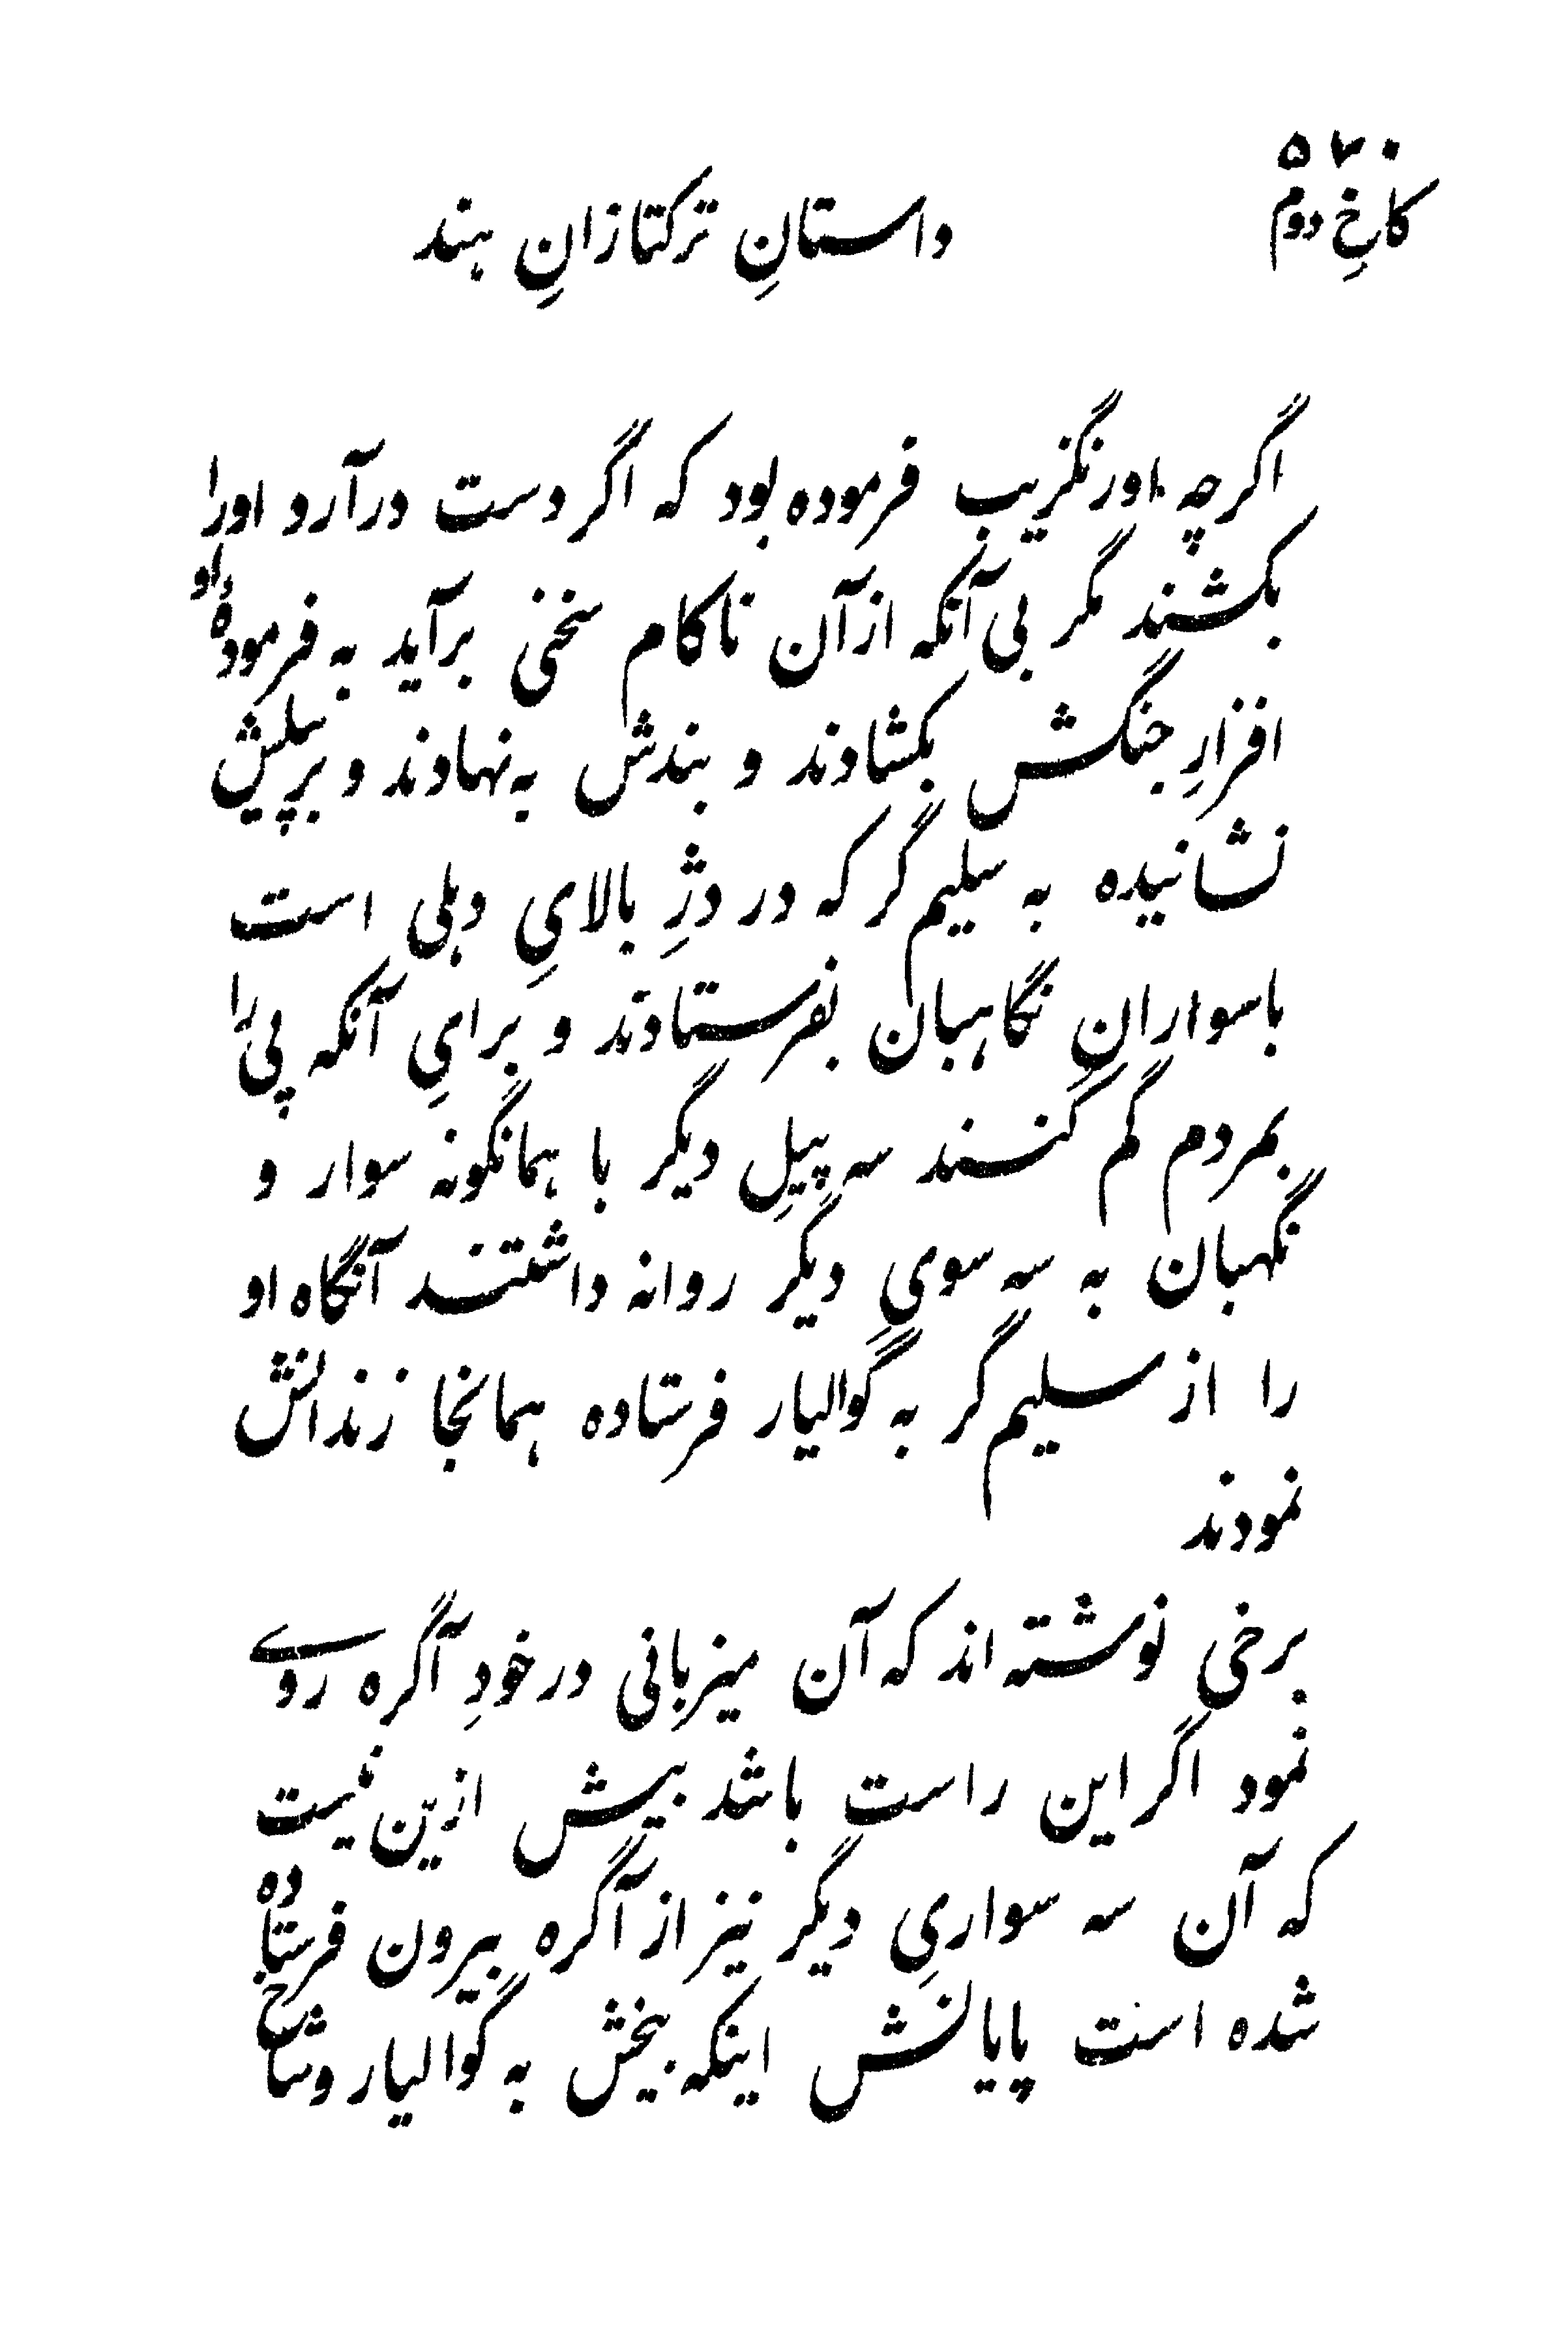 ۵۷۰
کاخِ دوم
داستانِ ترکتازانِ هند
اگرچه اورنگزیب فرموده بود که اگر دست درآرد اورا
بکشند مگر بی آنکه از آن ناکام سخنی برآید به فرمودهٔ او
افزارِ جنگش بکشادند و بندش به نهادند و بر پیلیش
نشانیده به سلیم گر که در دژِ بالایِ دهلی است
باسوارانِ نگاهبان بفرستادند و برایِ آنکه پی را
بمردم گم کنند سه پیلِ دیگر با همانگونه سوار و
نگهبان به سه سویِ دیگر روانه داشتند آنگاه او
را از سلیم گر به گوالیار فرستاده همانجا زندانش
نمودند
برخی نوشته اند که آن میزبانی در خودِ آگره روے
نمود اگر این راست باشد بیش ازین نیست
که آن سه سواریِ دیگر نیز از آگره بیرون فرستاده
شده است پایانش اینکه بخش به گوالیار و شاخ